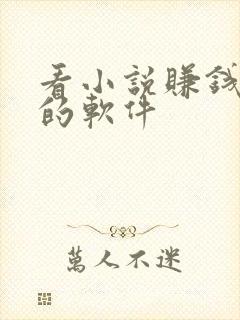 看小說賺錢
的軟件
萬人不迷